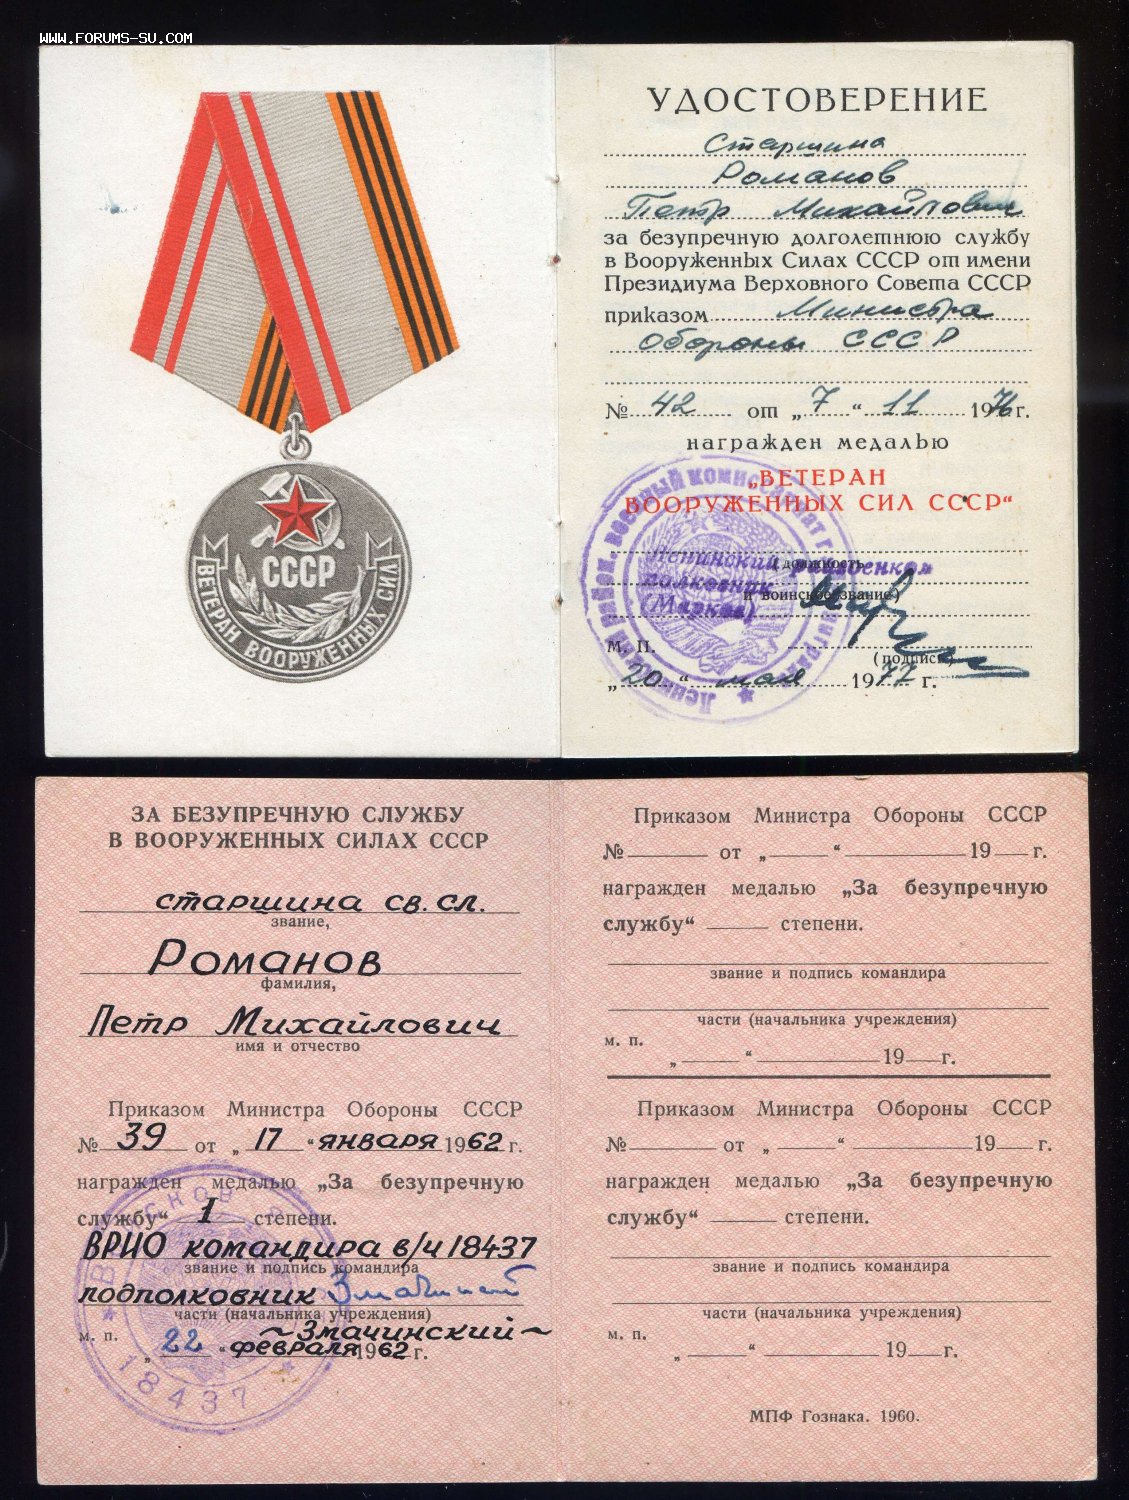 WWW.FORUMS-SU.COM
СССР
ВЕТЕРАН ВООРУЖЕННЫХ СИЛ
УДОСТОВЕРЕНИЕ
Старшина
Романов
Петр Михайлович
за безупречную долголетнюю службу
в Вооруженных Силах СССР от имени
Президиума Верховного Совета СССР
приказом Министра
Обороны СССР
№ 42 от „7“ 11 1976 г.
награжден медалью
„ВЕТЕРАН
ВООРУЖЕННЫХ СИЛ СССР“
Ленинский райвоенком
(должность
полковник
и воинское звание)
(Марков)
М. П.
(подпись)
„20“ мая 1977 г.
ЗА БЕЗУПРЕЧНУЮ СЛУЖБУ
В ВООРУЖЕННЫХ СИЛАХ СССР
старшина св. сл.
звание,
Романов
фамилия,
Петр Михайлович
имя и отчество
Приказом Министра Обороны СССР
№ 39 от „17“ января 1962 г.
награжден медалью „За безупречную
службу“ 1 степени.
ВРИО командира в/ч 18437
звание и подпись командира
подполковник
части (начальника учреждения)
~Змачинский~
м. п. „22“ февраля 1962 г.
18437
Приказом Министра Обороны СССР
№ от „ “ 19 г.
награжден медалью „За безупречную
службу“ степени.
звание и подпись командира
части (начальника учреждения)
м. п.
„ “ 19 г.
Приказом Министра Обороны СССР
№ от „ “ 19 г.
награжден медалью „За безупречную
службу“ степени.
звание и подпись командира
части (начальника учреждения)
м. п.
„ “ 19 г.
МПФ Гознака. 1960.